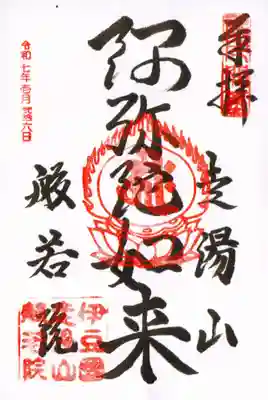 奉拝
走湯山
阿弥陀如来
般若院
令和七年壱月弐拾六日
伊豆国
走湯山
般若院